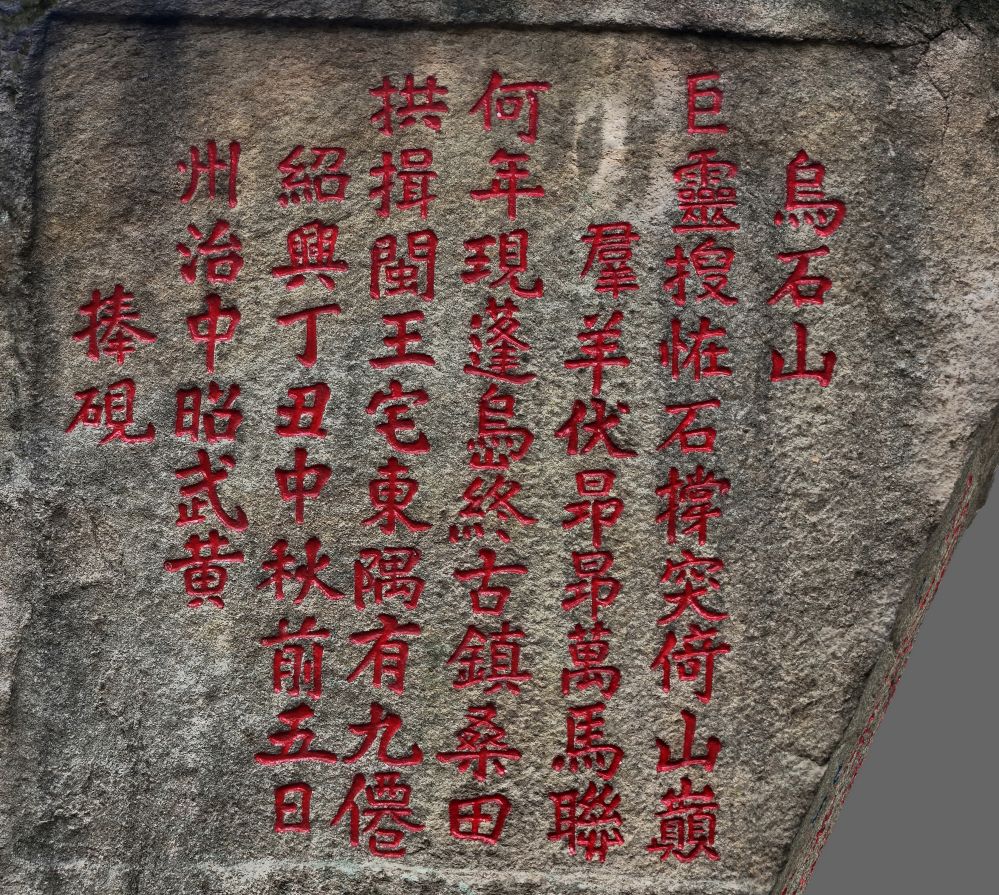 烏石山
巨靈挼恠石撑突倚山巔
羣羊伏昂昂萬馬聯
何年現蓬烏終古鎮桑田
拱揖閩王宅東隅有九僊
紹興丁丑中秋前五日
州治中昭武黄
捧硯